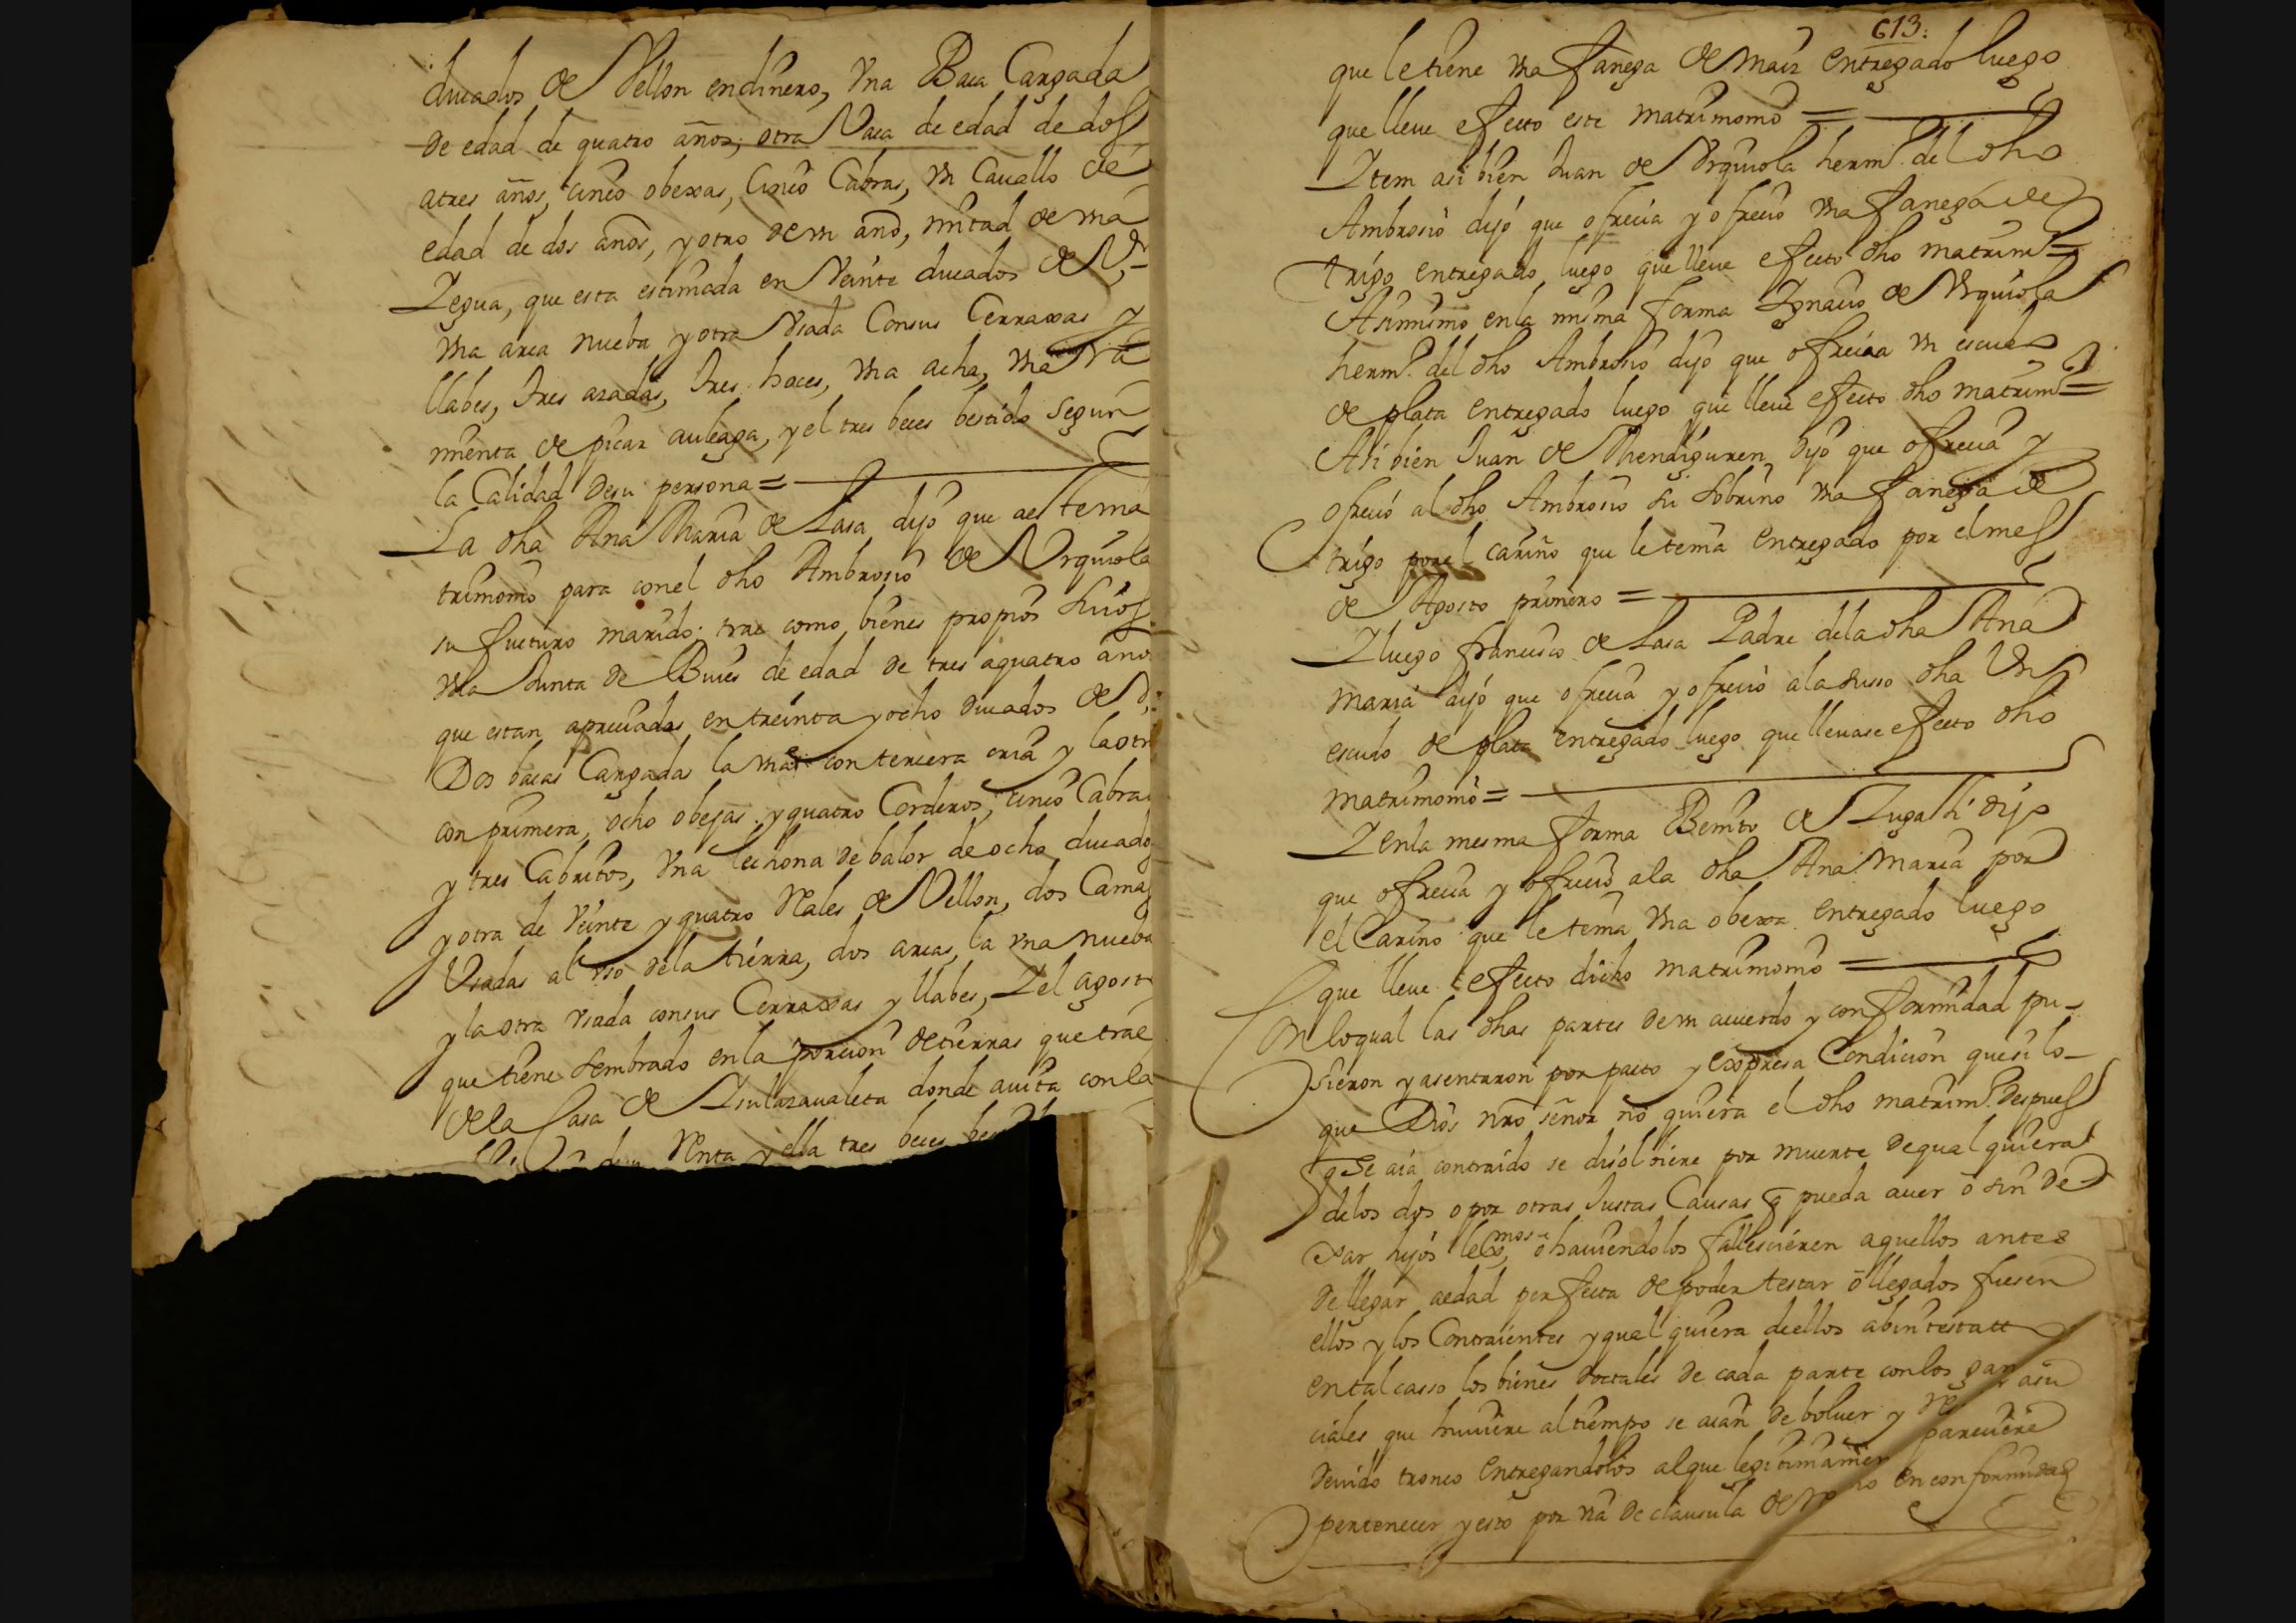 ducados de Vellon endinero, Vna Baca Cargada
de edad de quatro años, otra Vaca de edad de dos
atres años, cinco obexas, Cinco Cabras, vn Cauallo de
edad de dos años, y otro de vn año, mitad de vna
Yegua, que esta estimada en Veinte ducados de Vn
vna arca nueba y otra Vsada Consus Cerraxas y
llabes, tres azadas, tres hoces, vna acha, vna
mienta de picar auleaga, y el tres beces bestido segun
la Calidad desu persona =
La dha Ana Maria de Lasa dijo que aeste ma
trimonio para conel dho Ambrosio de Vrquiola
su fucturo marido: trae como bienes propios suios
vna Junta de Bueis de edad de tres aquatro año
que estan apreciadas entreinta y ocho ducados de
Dos bacas Cargadas la vna con tercera cria y laotr
con primera, ocho obejas y quatro Corderos, cinco Cabras
y tres Cabritos, vna lechona de balor de ocho ducados
y otra de Veinte y quatro Reales de Vellon, dos Camas
Vsadas al vso dela tierra, dos arcas, la vna nueba
y la otra vsada consus Cerraxas y llabes, Y el agost
que tiene sembrado enla porcion de tierras que trae
dela Casa de donde auita con la
Renta y ella tres beces
613.
que le tiene vna fanega de maiz entregado luego
que lleue efecto este matrimonio =
Ytem asi bien Juan de Vrquiola herm.º del dho
Ambrosio dijo que ofrecia y ofrecio vna fanega de
trigo entregado luego que lleue efecto dho matrim.º =
Asimismo enla misma forma Ygnacio de Vrquiola
herm.º del dho Ambrosio dijo que ofrecia vn escudo
de plata entregado luego que lleue efecto dho matrim.º =
Asi bien Juan de Mendiguren dijo que ofrecia y
ofrecio al dho Ambrosio su sobrino vna fanega de
trigo porel cariño que le tenia entregado por elmes
de Agosto primero =
Y luego francisco de Lasa Padre dela dha Ana
Maria dijo que ofrecia y ofrecio ala susso dha Vn
escudo de plata entregado luego que lleuase efecto dho
matrimonio =
Y enla mesma forma Benito de Lugasti dijo
que ofrecia y ofrecio ala dha Ana Maria por
el Cariño que le tenia vna obexa entregado luego
que lleue efecto dicho matrimonio =
Con loqual las dhas partes de vn acuerdo y conformidad pu-
sieron y asentaron por pacto y expresa Condicion que si lo-
que Dios nro señor no quiera el dho matrim.º despues
q se aia contraido se disolbiere por muerte de qual quiera
delos dos o por otras Justas Causas q pueda auer o sin de
xar hijos lexmos o hauiendolos fallescieren aquellos antes
de llegar aedad perfecta de poder testar o llegados fuesen
ellos y los Contraientes y qual quiera deellos abintestatt
ental casso los bienes doctales de cada parte conlos gan
ciales que huuiere al tiempo se aian de boluer y asu
deuido tronco entregandolos alque legitimamen pareciere
pertenecer y esto por via de clausula de en conformidad